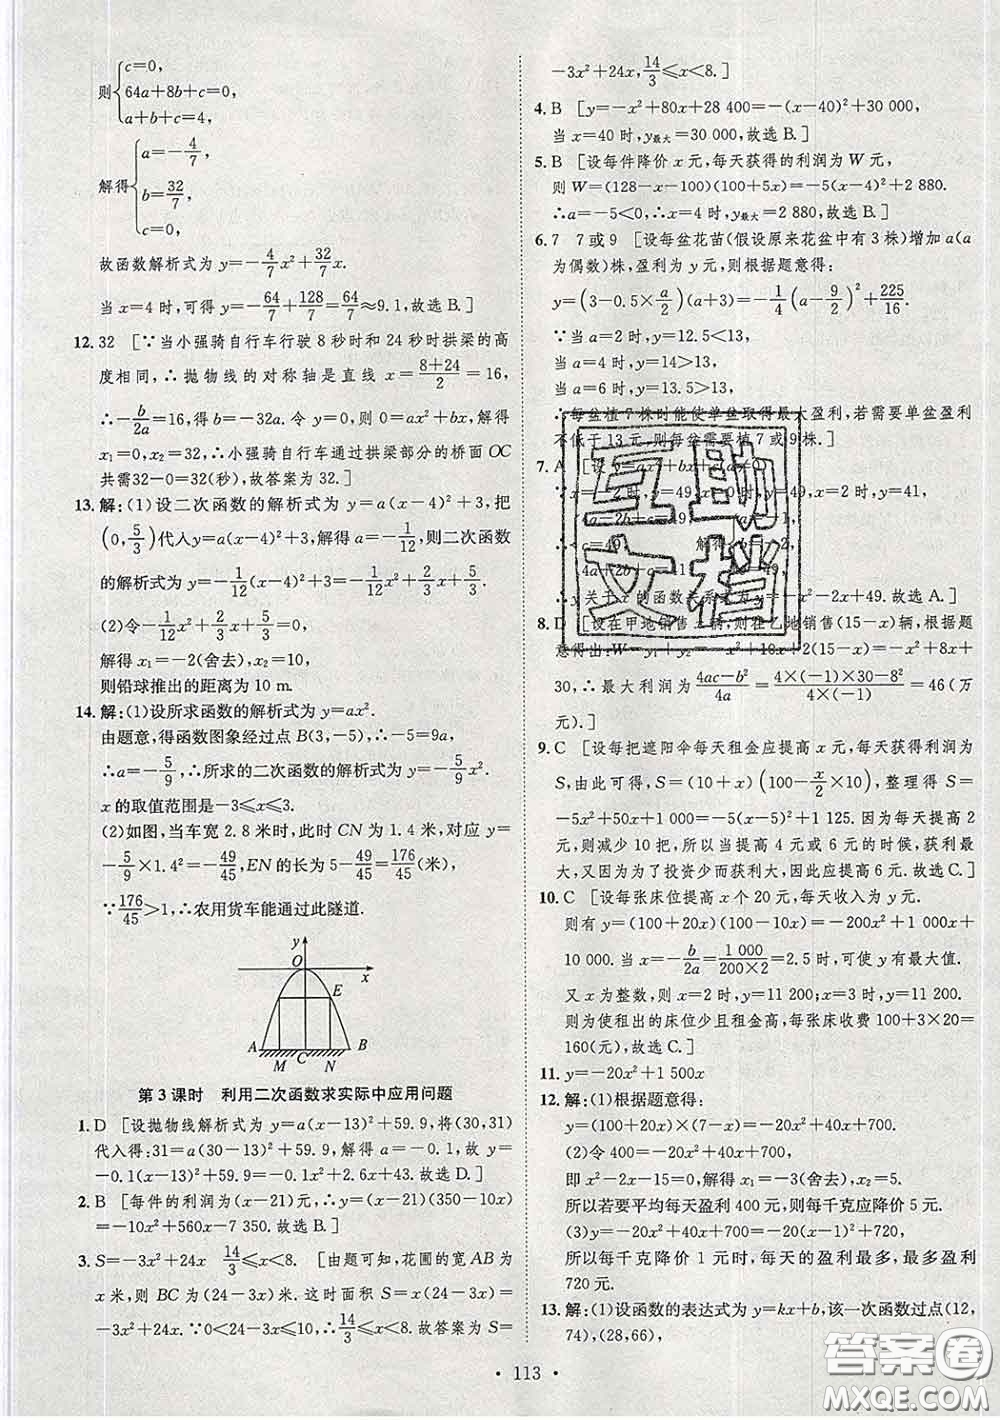 则{c=0,
64a+8b+c=0,
a+b+c=4,
解得{a=-4/7,
b=32/7,
c=0,
故函数解析式为 y=-4/7x²+32/7x.
当 x=4 时,可得 y=-64/7+128/7=64/7≈9.1,故选 B.]
12. 32 [∵当小强骑自行车行驶 8 秒时和 24 秒时拱梁的高
度相同,∴抛物线的对称轴是直线 x=(8+24)/2=16,
∴-b/2a=16,得 b=-32a.令 y=0,则 0=ax²+bx,解得
x₁=0,x₂=32,∴小强骑自行车通过拱梁部分的桥面 OC
共需32-0=32(秒),故答案为 32.]
13. 解:(1)设二次函数的解析式为 y=a(x-4)²+3,把
(0,5/3)代入 y=a(x-4)²+3,解得 a=-1/12,则二次函数
的解析式为 y=-1/12(x-4)²+3=-1/12x²+2/3x+5/3.
(2)令-1/12x²+2/3x+5/3=0,
解得 x₁=-2(舍去),x₂=10,
则铅球推出的距离为 10 m.
14. 解:(1)设所求函数的解析式为 y=ax².
由题意,得函数图象经过点 B(3,-5),∴-5=9a,
∴a=-5/9,∴所求的二次函数的解析式为 y=-5/9x²
x 的取值范围是-3≤x≤3.
(2)如图,当车宽 2.8 米时,此时 CN 为 1.4 米,对应 y=
-5/9×1.4²=-49/45,EN 的长为 5-49/45=176/45(米),
∵176/45>1,∴农用货车能通过此隧道.
y
O
x
E
A M C N B
第 3 课时 利用二次函数求实际中应用问题
1. D [设抛物线解析式为 y=a(x-13)²+59.9,将(30,31)
代入得:31=a(30-13)²+59.9,解得 a=-0.1,故 y=
-0.1(x-13)²+59.9=-0.1x²+2.6x+43.故选 D.]
2. B [每件的利润为(x-21)元,∴y=(x-21)(350-10x)
=-10x²+560x-7 350.故选 B.]
3. S=-3x²+24x 14/3≤x<8. [由题可知,花圃的宽 AB 为
x 米,则 BC 为(24-3x)米.这时面积 S=x(24-3x)=
-3x²+24x.∵0<24-3x≤10,∴14/3≤x<8.故答案为 S=
-3x²+24x,14/3≤x<8.]
4. B [y=-x²+80x+28 400=-(x-40)²+30 000,
当 x=40 时,y最大=30 000,故选 B.]
5. B [设每件降价 x 元,每天获得的利润为 W 元,
则 W=(128-x-100)(100+5x)=-5(x-4)²+2 880.
∴a=-5<0,∴x=4 时,y最大=2 880,故选 B.]
6. 7 7 或 9 [设每盆花苗(假设原来花盆中有 3 株)增加 a(a
为偶数)株,盈利为 y 元,则根据题意得:
y=(3-0.5×a/2)(a+3)=-1/4(a-9/2)²+225/16.
∵当 a=2 时,y=12.5<13,
当 a=4 时,y=14>13,
当 a=6 时,y=13.5>13,
∴每盆植 7 株时能使单盆取得最大盈利,若需要单盆盈利
不低于 13 元,则每盆需要植 7 或 9 株.]
7. A [设 y=ax²+bx+c(a≠0)
∵x=-2 时,y=49,x=0 时,y=49,x=2 时,y=41,
4a-2b+c=49,
c=49, 解得
4a+2b+c=41,
∴y 关于 x 的函数关系式为 y=-x²-2x+49.故选 A.]
8. D [设在甲地销售 x 辆,则在乙地销售(15-x)辆,根据题
意得出:W=y₁+y₂=-x²+10x+2(15-x)=-x²+8x+
30,∴最大利润为(4ac-b²)/4a=(4×(-1)×30-8²)/(4×(-1))=46(万
元).]
9. C [设每把遮阳伞每天租金应提高 x 元,每天获得利润为
S,由此可得,S=(10+x)(100-x/2×10),整理得 S=
-5x²+50x+1 000=-5(x-5)²+1 125.因为每天提高 2
元,则减少 10 把,所以当提高 4 元或 6 元的时候,获利最
大,又因为为了投资少而获利大,因此应提高 6 元.故选 C.]
10. C [设每张床位提高 x 个 20 元,每天收入为 y 元.
则有 y=(100+20x)(100-10x)=-200x²+1 000x+
10 000.当 x=-b/2a=1 000/(200×2)=2.5 时,可使 y 有最大值.
又 x 为整数,则 x=2 时,y=11 200;x=3 时,y=11 200.
则为使租出的床位少且租金高,每张床收费 100+3×20=
160(元),故选 C.]
11. y=-x²-20x+4 800
12. 解:(1)根据题意得:
y=(100+20x)×(7-x)=-20x²+40x+700.
(2)令400=-20x²+40x+700,
即 x²-2x-15=0,解得 x₁=-3(舍去),x₂=5.
所以若要平均每天盈利 400 元,则每千克应降价 5 元.
(3)y=-20x²+40x+700=-20(x-1)²+720,
所以每千克降价 1 元时,每天的盈利最多,最多盈利
720 元.
13. 解:(1)设函数的表达式为 y=kx+b,该一次函数过点(12,
74),(28,66),
• 113 •
互助
文档
答案圈
MXQE.COM